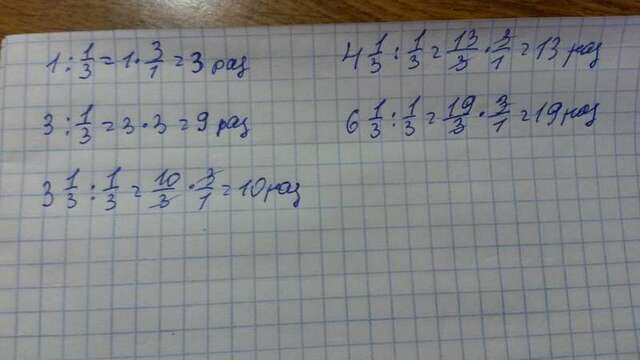 1 : 1/3 = 1 · 3/1 = 3 раз
3 : 1/3 = 3 · 3 = 9 раз
3 1/3 : 1/3 = 10/3 · 3/1 = 10 раз
4 1/3 : 1/3 = 13/3 · 3/1 = 13 раз
6 1/3 : 1/3 = 19/3 · 3/1 = 19 раз